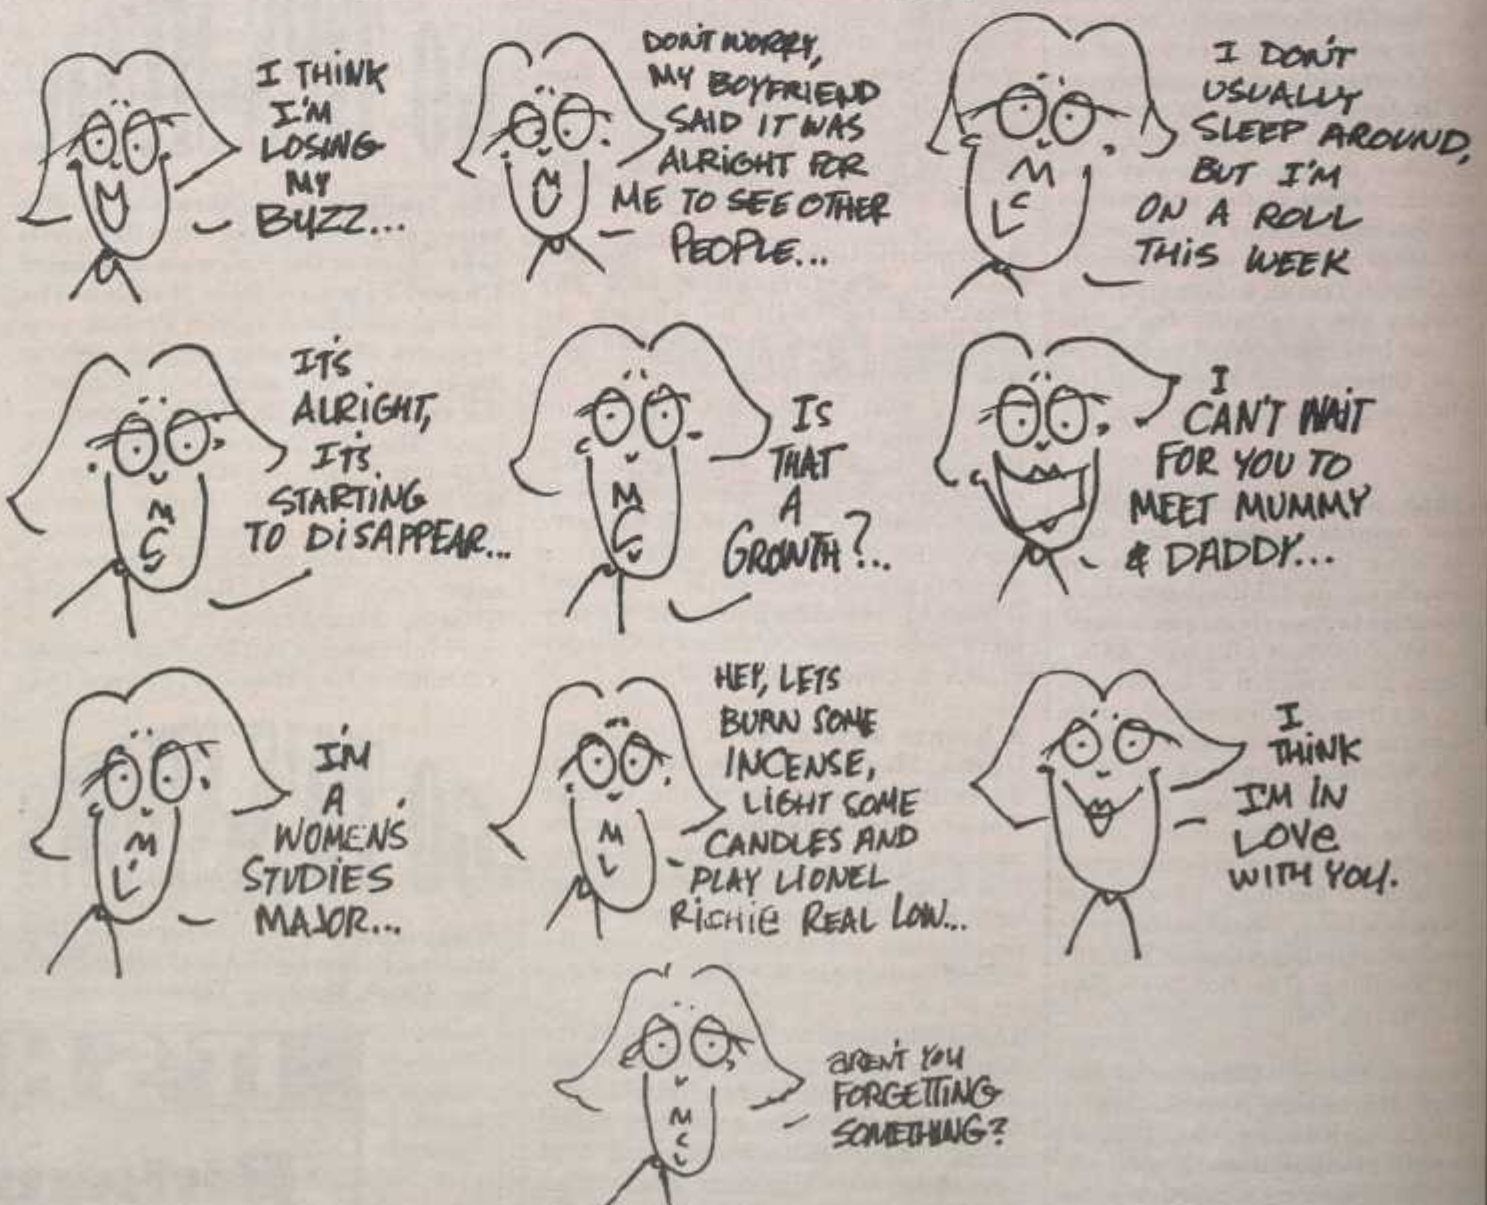 I THINK
I'M
LOSING
MY
BUZZ...
DON'T WORRY,
MY BOYFRIEND
SAID IT WAS
ALRIGHT FOR
ME TO SEE OTHER
PEOPLE...
I DON'T
USUALLY
SLEEP AROUND,
BUT I'M
ON A ROLL
THIS WEEK
IT'S
ALRIGHT,
IT'S
STARTING
TO DISAPPEAR...
IS
THAT
A
GROWTH?...
I
CAN'T WAIT
FOR YOU TO
MEET MUMMY
& DADDY...
I'M
A
WOMEN'S
STUDIES
MAJOR...
HEY, LETS
BURN SOME
INCENSE,
LIGHT SOME
CANDLES AND
PLAY LIONEL
RICHIE REAL LOW...
I
THINK
I'M IN
LOVE
WITH YOU.
AREN'T YOU
FORGETTING
SOMETHING?